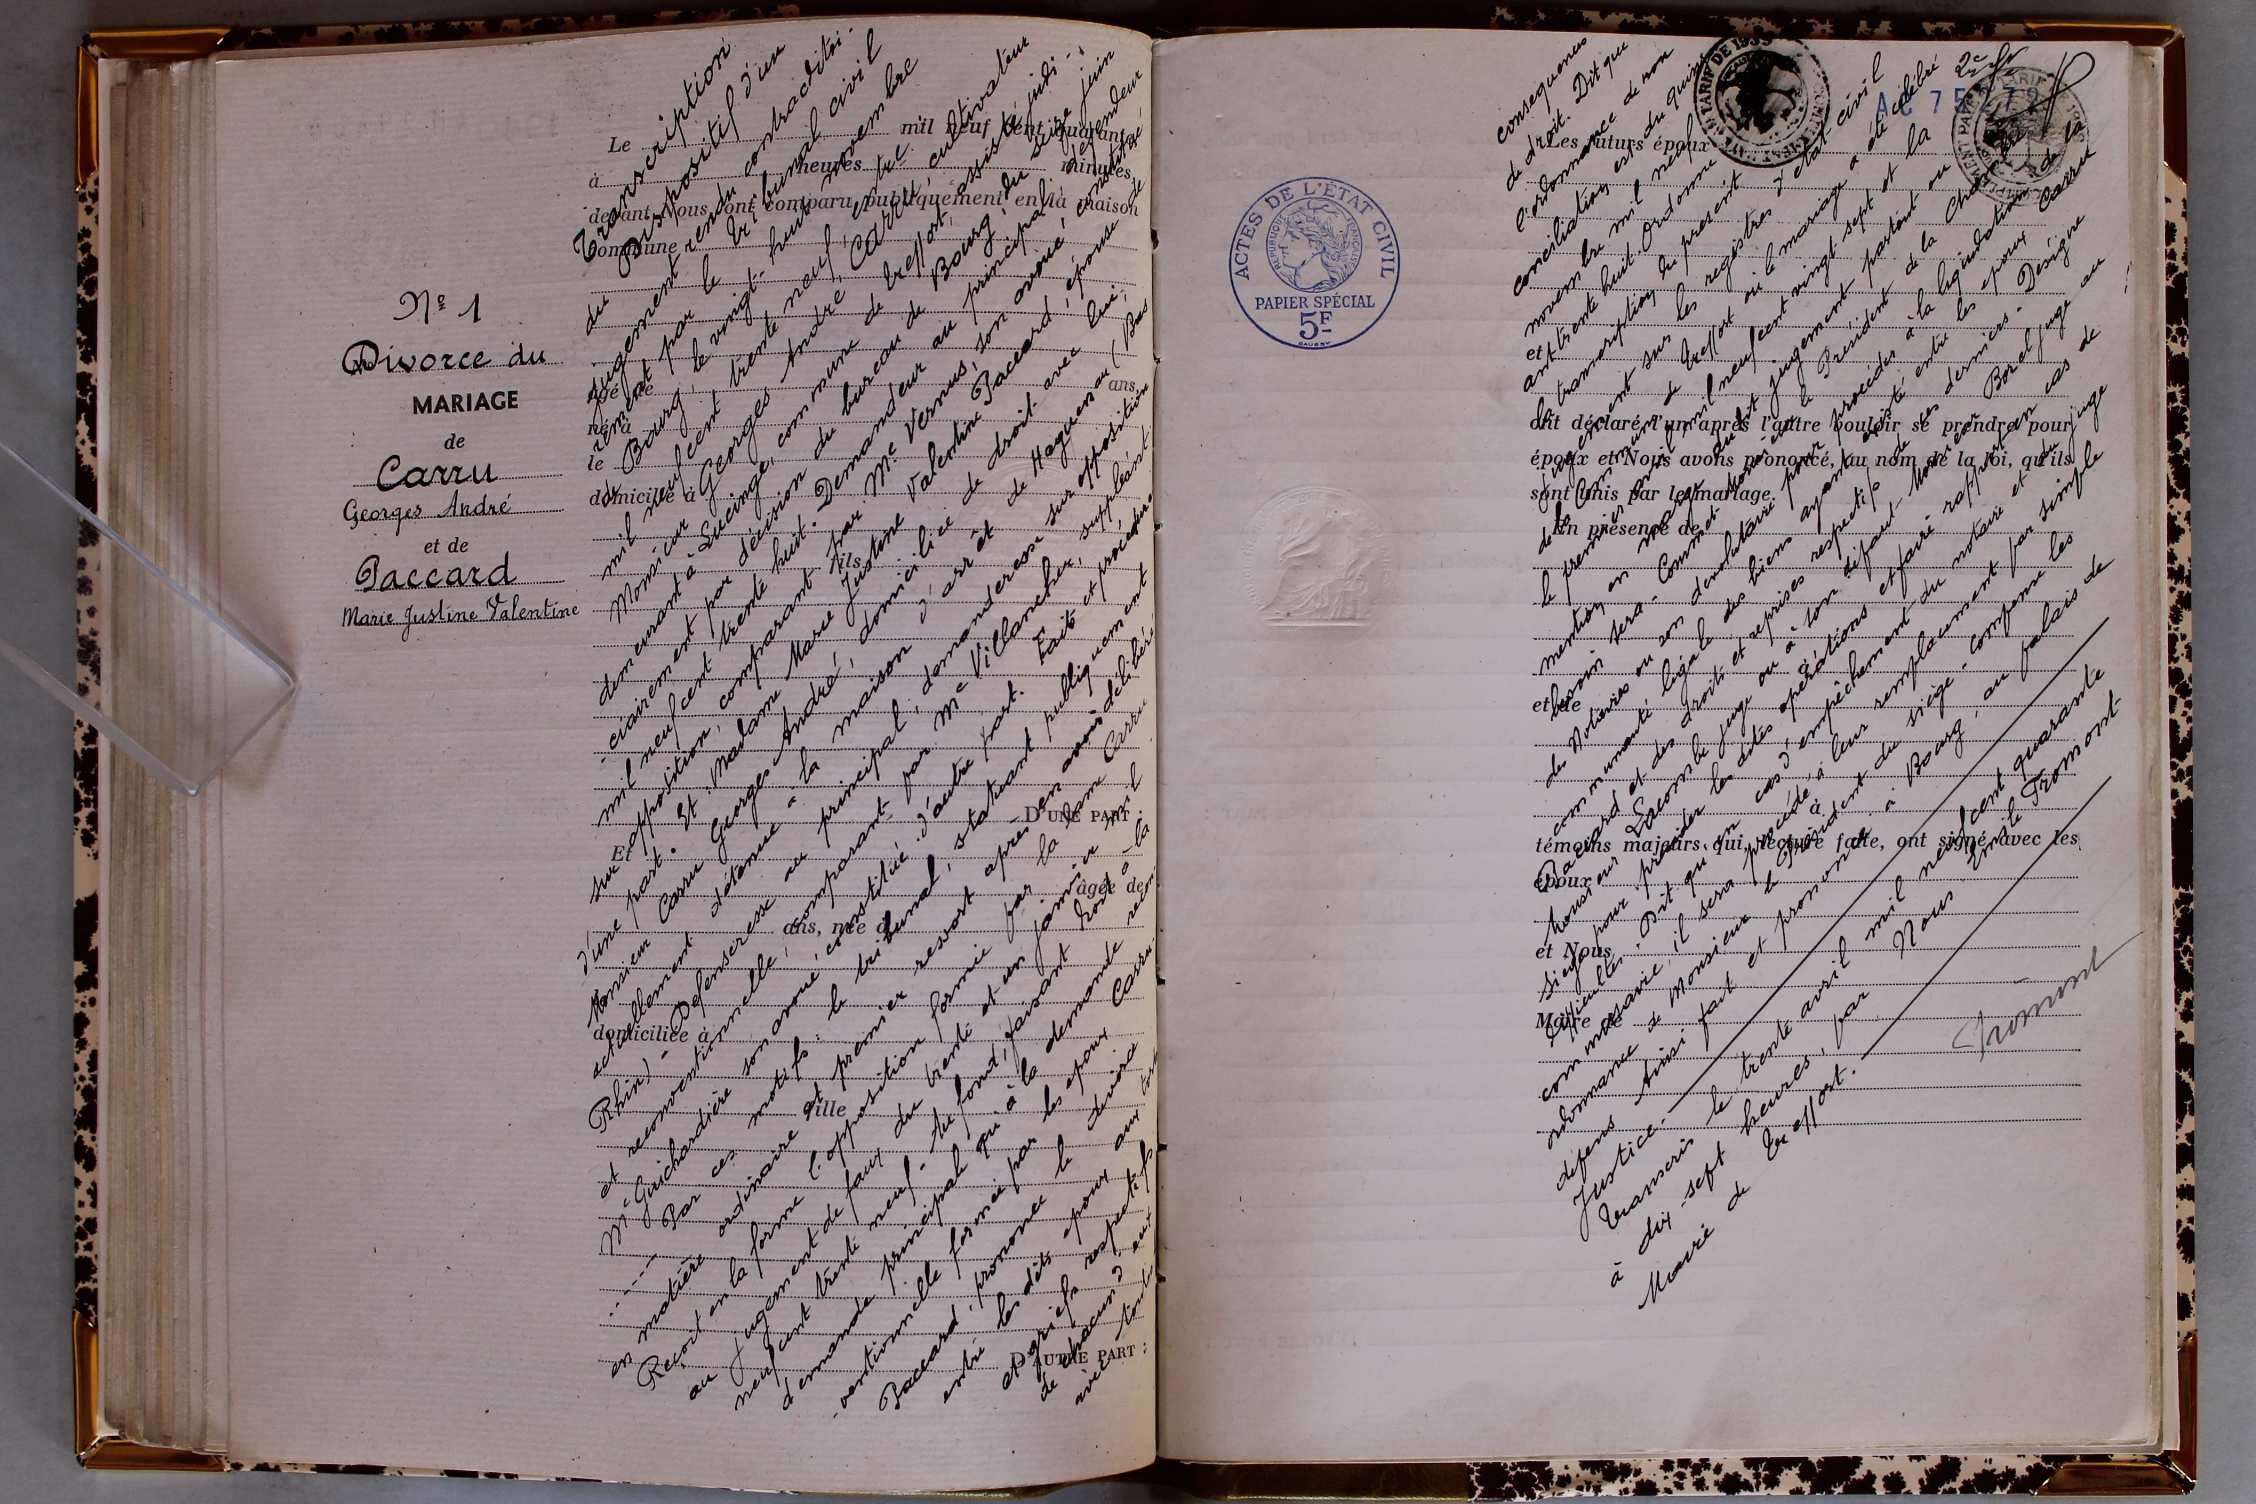 Nº 1
Divorce du
MARIAGE
de
Carru
Georges André
et de
Paccard
Marie Justine Valentine
Le mil neuf cent quarante
à heures minutes,
devant Nous ont comparu publiquement en la maison
commune
âgé de ans,
né à
le
domicilié à
fils
D'UNE PART :
Et
âgée de
ans, née à
domiciliée à
fille
D'AUTRE PART :
Transcription
du Dispositif d'un
jugement rendu contradictoi-
rement par le tribunal civil
de Bourg, le vingt-huit novembre
mil neufcent trente neuf entre :
Monsieur Georges André Carru, cultivateur
demeurant à Lucinge, commune de Treffort, assisté judi-
-ciairement par décision du bureau de Bourg, du seize juin
mil neufcent trente huit. Demandeur au principal, défendeur
sur opposition, comparant par Me Vernus, son avoué constitué
d'une part. Et Madame Marie Justine Valentine Paccard, épouse de
Monsieur Carru Georges André, domiciliée de droit avec lui,
actuellement détenue à la maison d'arrêt de Haguenau (Bas
Rhin) - Défenseresse au principal, demanderesse sur opposition
et reconventionnelle, comparant par Me Villancher, suppléant
Me Guichardière son avoué constitué d'autre part. Faits et procédure
Par ces motifs : le tribunal, statuant publiquement
en matière ordinaire et premier ressort après en avoir délibéré
Reçoit en la forme l'opposition formée par la dame Carru
au jugement de faux du trente et un janvier mil
neufcent trente neuf - Au fond, faisant droit à la
demande principale qu'à la demande recon
-ventionnelle formée par les époux Carru-
Paccard, prononce le divorce
entre les dits époux aux torts
et griefs respectifs
de chacun d'eux
avec tout
conséquences
de droit. Dit que
l'ordonnance de non
conciliation est du quinze
novembre mil neuf
cent trente huit. Ordonne
la transcription du présent
jugement sur les registres d'état civil
de la Commune de Treffort où le mariage a été célébré
le premier avril mil neufcent vingt-sept et la
mention en marge dudit jugement partout où
besoin sera. Commet Monsieur le Président de la Chambre
des Notaires ou son dévolutaire pour procéder à la liquidation de la
communauté légale des biens ayant existé entre les époux Carru
Paccard et des droits et reprises respectifs de ces derniers. Désigne
Monsieur Lacombe juge ou à son défaut Monsieur Borel juge au
siège pour présider les dites opérations et faire rapport en cas de
difficultés. Dit qu'en cas d'empêchement du notaire et du juge
commissaire, il sera procédé à leur remplacement par simple
ordonnance de Monsieur le Président du siège - compense les
dépens Ainsi fait et prononcé à Bourg, au palais de
Justice.
Transcrit le trente avril mil neufcent quarante
à dix-sept heures, par Nous Emile Tromont
Maire de Treffort.
Tromont
2e
AC 75
TARIF DE 1935
ACTES DE L'ÉTAT CIVIL
RÉPUBLIQUE FRANÇAISE
PAPIER SPÉCIAL
5F
Les futurs époux
et
ont déclaré l'un après l'autre vouloir se prendre pour
époux et Nous avons prononcé, au nom de la loi, qu'ils
sont unis par le mariage.
En présence de
et de
à
témoins majeurs qui, lecture faite, ont signé avec les
époux
et Nous
Maire de